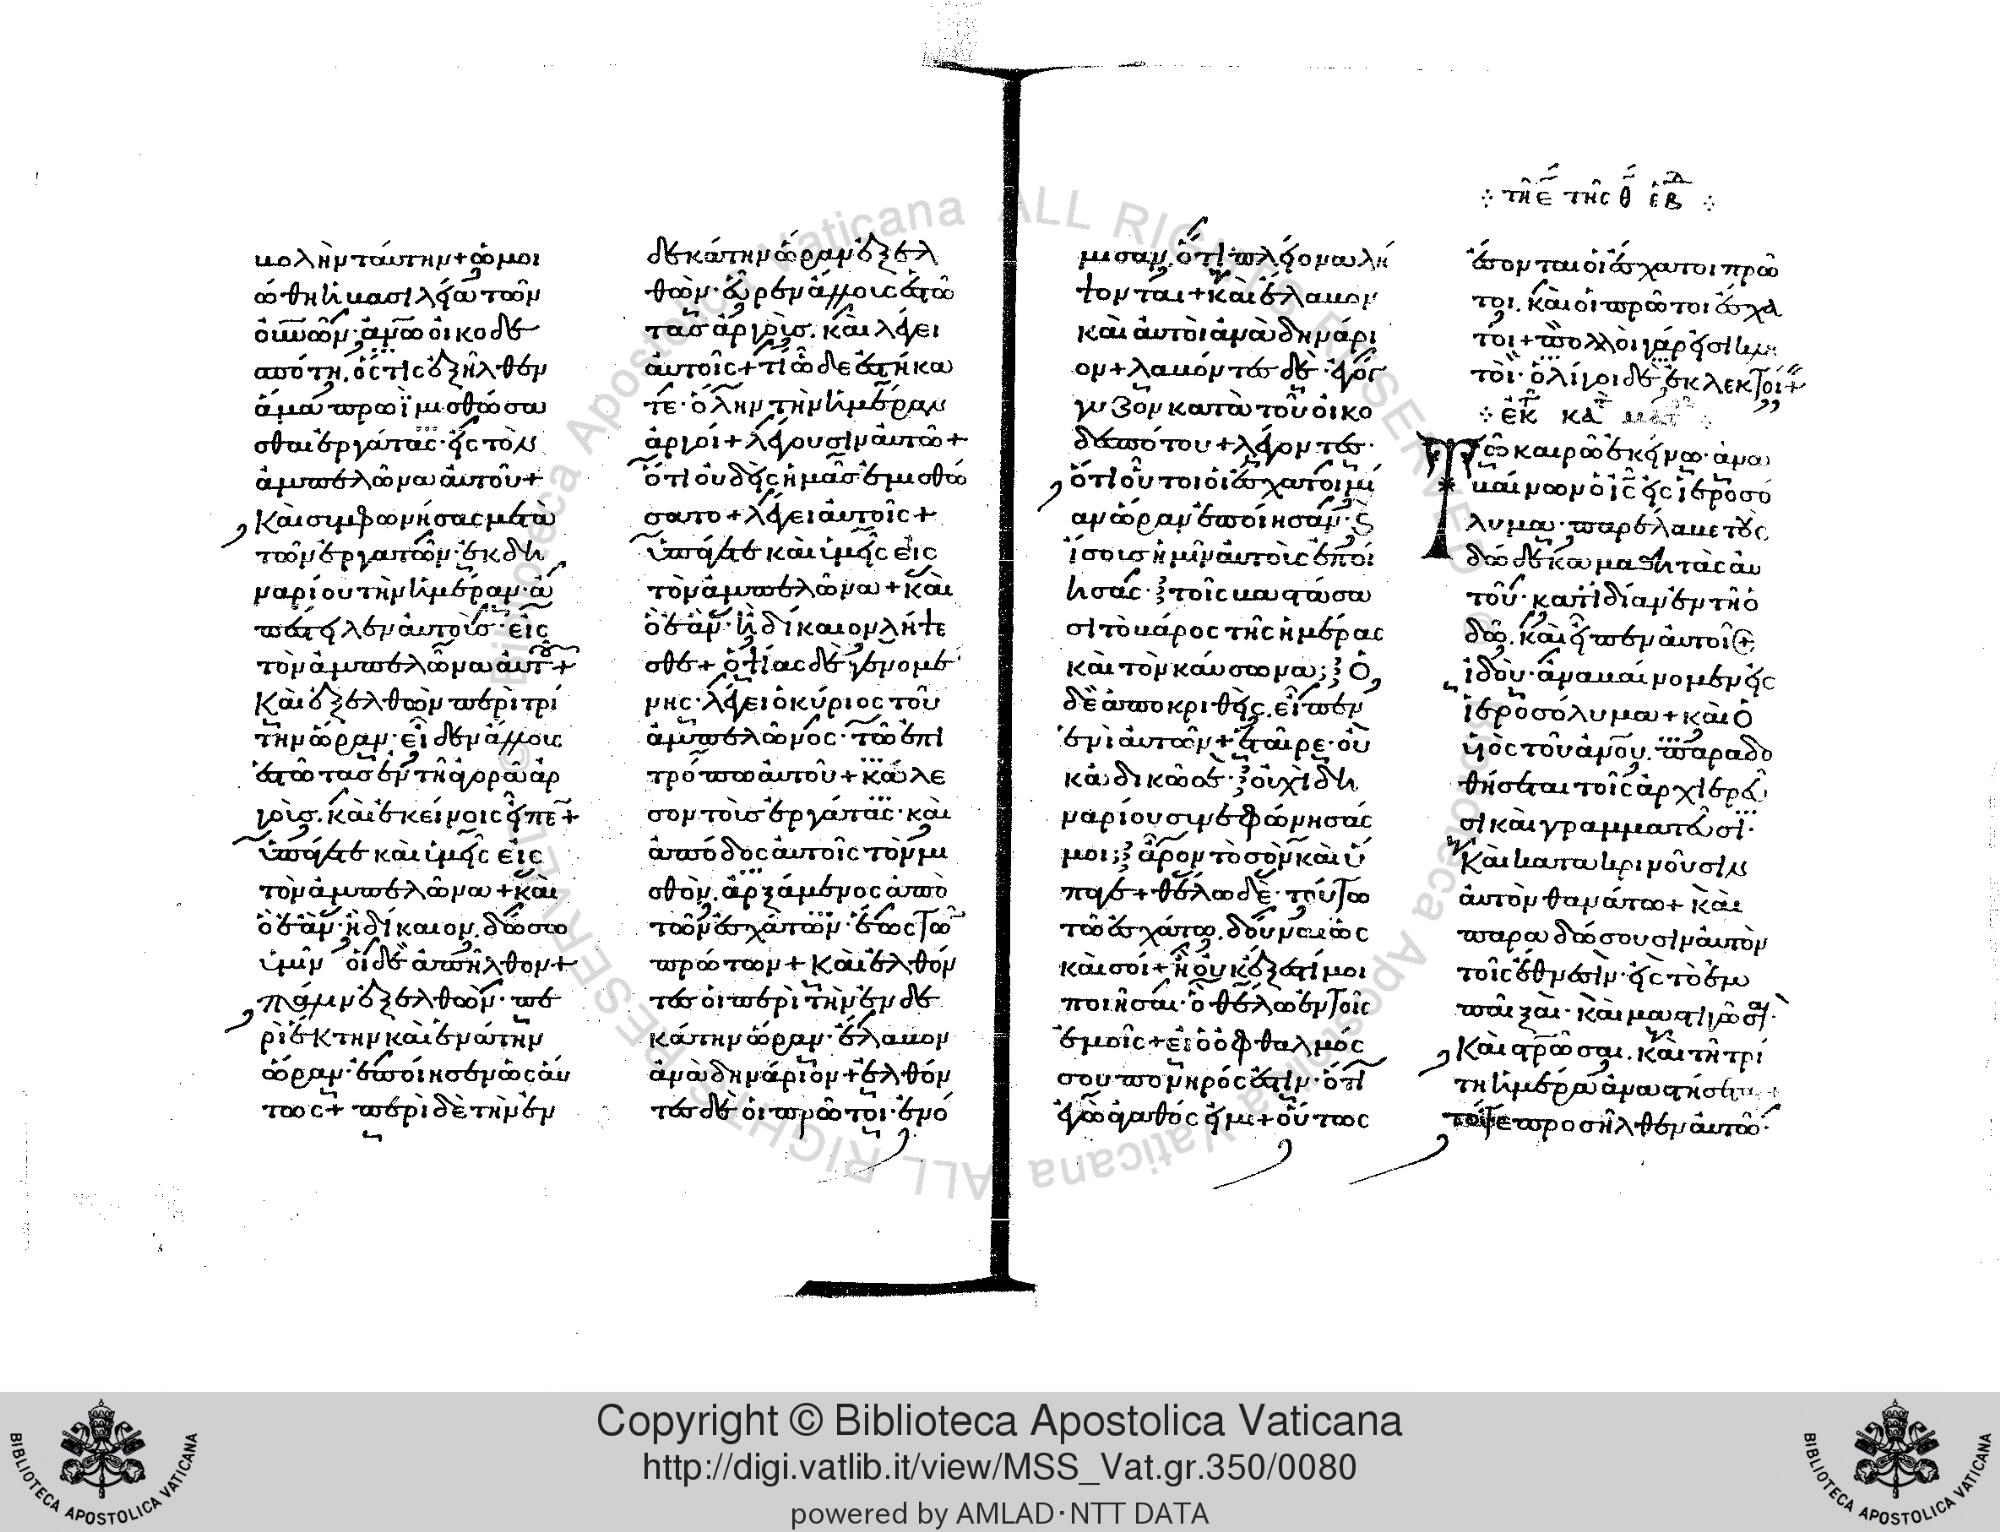 βολὴν ταύτην + ὡμοι
ώθη ἡ βασιλεία τῶν
οὐνῶν· ἀνῶ οἰκοδε
σπότη, ὅστις ἐξῆλθεν
ἅμα πρωῒ μισθώσα
σθαι ἐργάτας· εἰς τὸν
ἀμπελῶνα αὐτοῦ +
Καὶ συμφωνήσας μετὰ
τῶν ἐργατῶν· ἐκ δη
ναρίου τὴν ἡμέραν· ἀ
πέστειλεν αὐτοὺς· εἰς
τὸν ἀμπελῶνα αὐτοῦ +
Καὶ ἐξελθὼν περὶ τρί
την ὥραν· εἶδεν ἄλλους
ἑστῶτας ἐν τῇ ἀγορᾷ ἀρ
γούς. καὶ ἐκείνοις εἶπε +
ὑπάγετε καὶ ὑμεῖς εἰς
τὸν ἀμπελῶνα + καὶ
ὃ ἐὰν ᾖ δίκαιον, δώσω
ὑμῖν οἱ δὲ ἀπῆλθον +
πάλιν ἐξελθὼν· πε
ρὶ ἕκτην καὶ ἐνάτην
ὥραν· ἐποίησεν ὡσαύ
τως + περὶ δὲ τὴν ἑν
δεκάτην ὥραν ἐξελ
θὼν· εὗρεν ἄλλους ἑστῶ
τας ἀργούς. καὶ λέγει
αὐτοῖς + τί ὧδε ἑστήκα
τε· ὅλην τὴν ἡμέραν
ἀργοί + λέγουσιν αὐτῷ +
ὅτι οὐδεὶς ἡμᾶς ἐμισθώ
σατο + λέγει αὐτοῖς +
ὑπάγετε καὶ ὑμεῖς εἰς
τὸν ἀμπελῶνα + καὶ
ὃ ἐὰν· ᾖ δίκαιον λήψε
σθε + ὀψίας δὲ γενομέ
νης· λέγει ὁ κύριος τοῦ
ἀμπελῶνος· τῷ ἐπι
τρόπῳ αὐτοῦ + κάλε
σον τοὺς ἐργάτας· καὶ
ἀπόδος αὐτοῖς τὸν μι
σθὸν. ἀρξάμενος ἀπὸ
τῶν ἐσχάτων· ἕως τῶ
πρώτων + Καὶ ἐλθόν
τες οἱ περὶ τὴν ἑνδε
κάτην ὥραν· ἔλαβον
ἀνὰ δηνάριον + ἐλθόν
τες δὲ οἱ πρῶτοι· ἐνό
μισαν, ὅτι πλείονα λή
ψονται + καὶ ἔλαβον
καὶ αὐτοὶ ἀνὰ δηνάρι
ον + λαβόντες δὲ· ἐγόγ
γυζον κατὰ τοῦ οἰκο
δεσπότου + λέγοντες·
ὅτι οὗτοι οἱ ἔσχατοι μί
αν ὥραν ἐποίησαν· καὶ
ἴσους ἡμῖν αὐτοὺς ἐποί
ησας· τοῖς βαστάσα
σι τὸ βάρος τῆς ἡμέρας
καὶ τὸν καύσωνα; ὁ
δὲ ἀποκριθεὶς, εἶπεν
ἑνὶ αὐτῶν + ἑταῖρε· οὐ
κ ἀδικῶ σε· οὐχὶ δη
ναρίου συνεφώνησάς
μοι; ἆρον τὸ σὸν καὶ ὕ
παγε + θέλω δὲ· τούτῳ
τῷ ἐσχάτῳ, δοῦναι ὡς
καὶ σοί + ἢ οὐκ ἔξεστί μοι
ποιῆσαι· ὃ θέλω ἐν τοῖς
ἐμοῖς + εἰ ὁ ὀφθαλμός
σου πονηρός ἐστιν· ὅτι
ἐγὼ ἀγαθός εἰμι + οὕτως
τῇ ε τῆς θ εβδ
ἔσονται οἱ ἔσχατοι πρῶ
τοι. καὶ οἱ πρῶτοι ἔσχα
τοι + πολλοὶ γάρ εἰσι κλη
τοὶ· ὀλίγοι δὲ ἐκλεκτοί +
ἐκ κα ματ
Τῷ καιρῷ ἐκείνῳ· ἀνα
βαίνων ὁ ις εἰς ἱεροσό
λυμα· παρέλαβε τοὺς
δώδεκα μαθητὰς αὐ
τοῦ· κατ' ἰδίαν ἐν τῇ ὁ
δῷ. καὶ εἶπεν αὐτοῖς +
ἰδοὺ· ἀναβαίνομεν εἰς
ἱεροσόλυμα + καὶ ὁ
υἱὸς τοῦ ἀνου. παραδο
θήσεται τοῖς ἀρχιερεῦ
σι καὶ γραμματεῦσι·
Καὶ κατακρινοῦσιν
αὐτὸν θανάτῳ + καὶ
παραδώσουσιν αὐτὸν
τοῖς ἔθνεσιν· εἰς τὸ ἐμ
παῖξαι· καὶ μαστιγῶσαι·
Καὶ σταυρῶσαι. καὶ τῇ τρί
τῃ ἡμέρᾳ ἀναστήσεται +
τότε προσῆλθεν αὐτῷ·
Copyright © Biblioteca Apostolica Vaticana
http://digi.vatlib.it/view/MSS_Vat.gr.350/0080
powered by AMLAD·NTT DATA
BIBLIOTECA APOSTOLICA VATICANA
BIBLIOTECA APOSTOLICA VATICANA